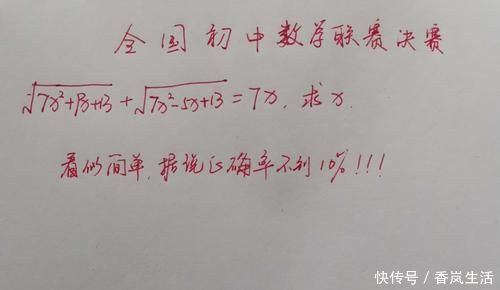 全国初中数学联赛决赛
√7x²+9x+13 + √7x²-5x+13 = 7x, 求x.
看似简单,据说正确率不到10%!!!
快传号/香岚生活